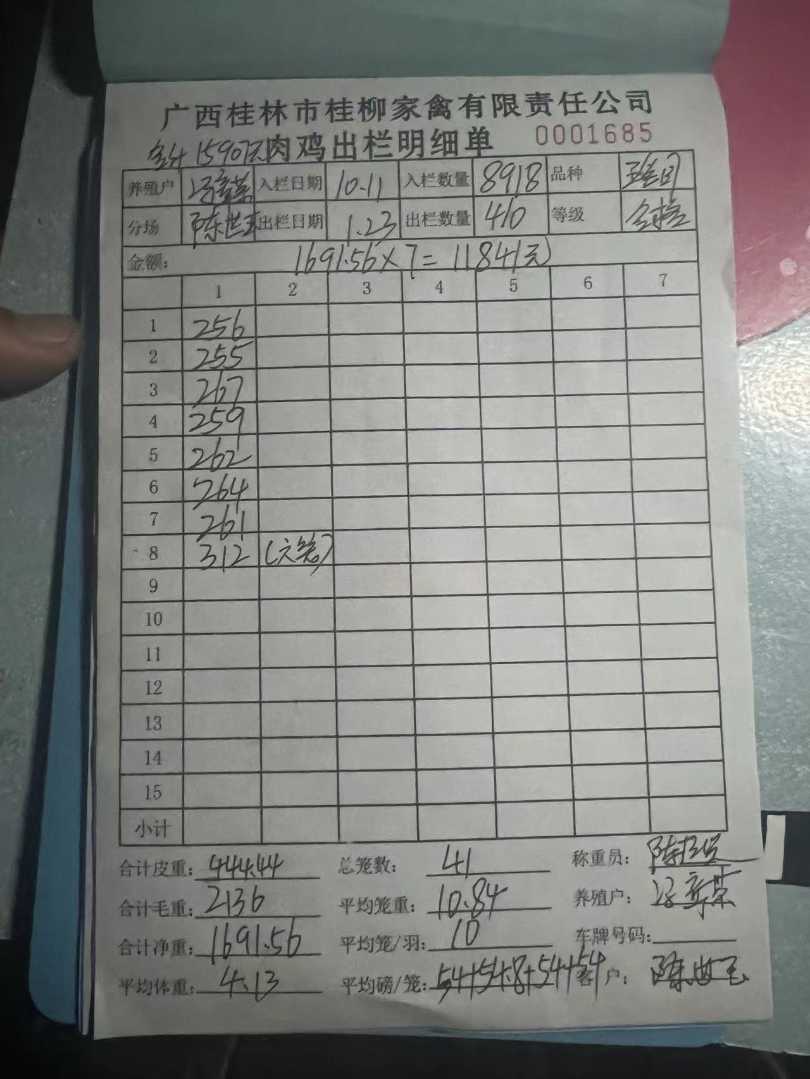 广西桂林市桂柳家禽有限责任公司
15907元 肉鸡出栏明细单 0001685
养殖户 入栏日期 10.11 入栏数量 8918 品种
分场 陈世玉 出栏日期 1.23 出栏数量 410 等级
金额: 1691.56×7=11841元
1 2 3 4 5 6 7
1 256
2 255
3 267
4 259
5 262
6 264
7 261
8 312 (六笼)
9
10
11
12
13
14
15
小计
合计皮重: 444.44 总笼数: 41 称重员:
合计毛重: 2136 平均笼重: 10.84 养殖户:
合计净重: 1691.56 平均笼/羽: 10 车牌号码:
平均体重: 4.13 平均磅/笼: 54+54.8+54+54 客户: 陈世玉